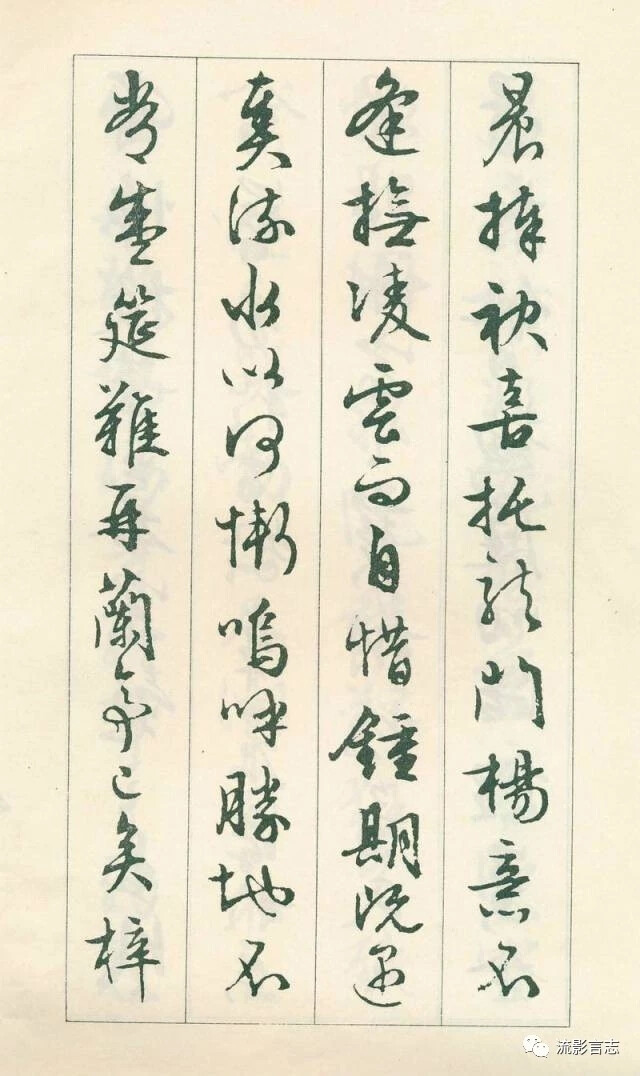 晨捧袂喜托龍門楊意不
逢撫凌雲而自惜鍾期既遇
奏流水以何慚嗚呼勝地不
常盛筵難再蘭亭已矣梓
流影言志